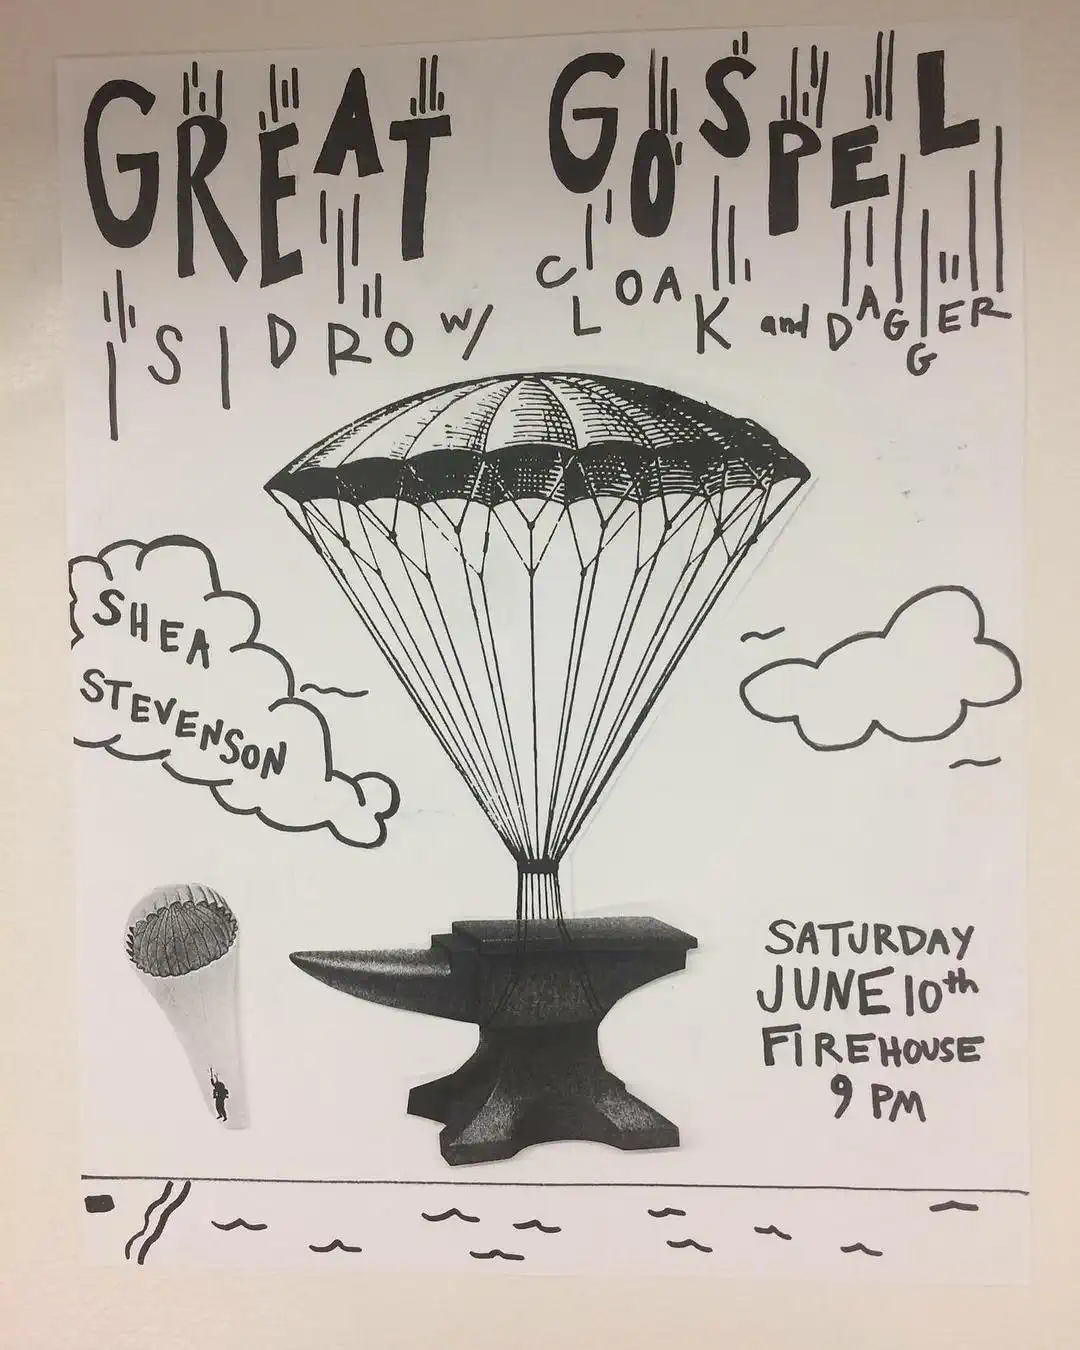 GREAT GOSPEL
ISIDRO w/ CLOAK and DAGGER
SHEA
STEVENSON
SATURDAY
JUNE 10th
FIREHOUSE
9 PM